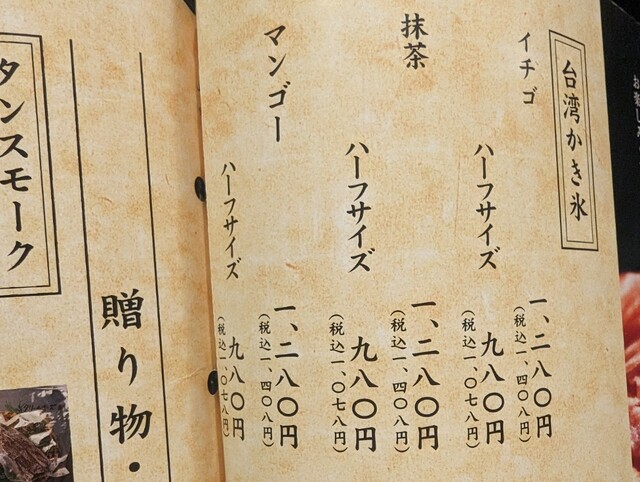 台湾かき氷
イチゴ
一、二八〇円
(税込一、四〇八円)
ハーフサイズ
九八〇円
(税込一、〇七八円)
抹茶
一、二八〇円
(税込一、四〇八円)
ハーフサイズ
九八〇円
(税込一、〇七八円)
マンゴー
一、二八〇円
(税込一、四〇八円)
ハーフサイズ
九八〇円
(税込一、〇七八円)
贈り物・
タンスモーク